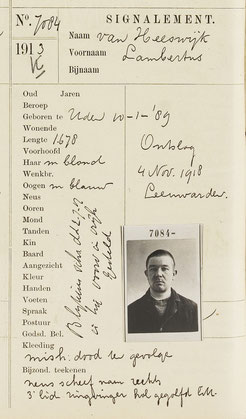 No. 7084 SIGNALEMENT.
1913 Naam van Heeswijk
Voornaam Lambertus
Bijnaam
Oud Jaren
Beroep
Geboren te Uden 10-1-'89
Wonende
Lengte 1678 Ontslag
Voorhoofd
Haar m blond 4 Nov. 1918
Wenkbr.
Oogen m blauw Leeuwarden
Neus
Ooren
Mond
Tanden
Kin
Baard
Aangezicht
Kleur
Handen
Voeten
Spraak
Postuur
Godsd. Bel.
Blijkens
in het voor in vrijh
gesteld
7084-
Kleeding
mish. dood te gevolge
Bijzond. teekenen
neus scheef naar rechts
3e lid ringvinger